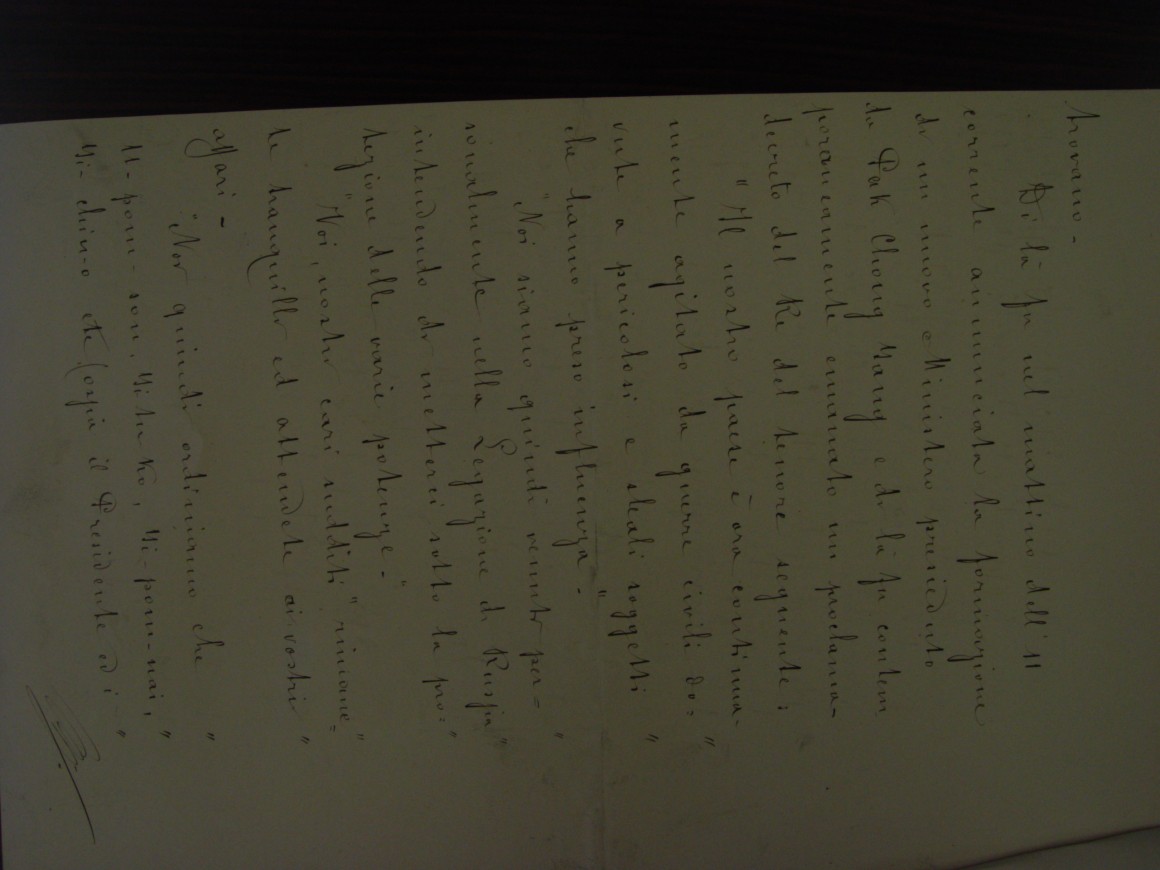 trovano -
Di là fu nel mattino dell' 11
corrente annunciata la formazione
di un nuovo Ministero presieduto
da Pak Chong Yang e di là fu contem
poraneamente emanato un proclama-
decreto del Re del tenore seguente:
"Il nostro paese è ora continua-
mente agitato da guerre civili do= "
vute a pericolosi e sleali soggetti "
che hanno preso influenza - "
"Noi siamo quindi venuti per= "
sonalmente nella Legazione di Russia "
intendendo di metterci sotto la pro= "
tezione delle varie potenze - "
"Voi, nostri cari sudditi" rimane= "
te tranquilli ed attendete ai vostri "
affari -
"Noi quindi ordiniamo che "
U-pom-son, Yi-pom-nai, "
Yi-chin-o etc (ossia il Presidente ed i "